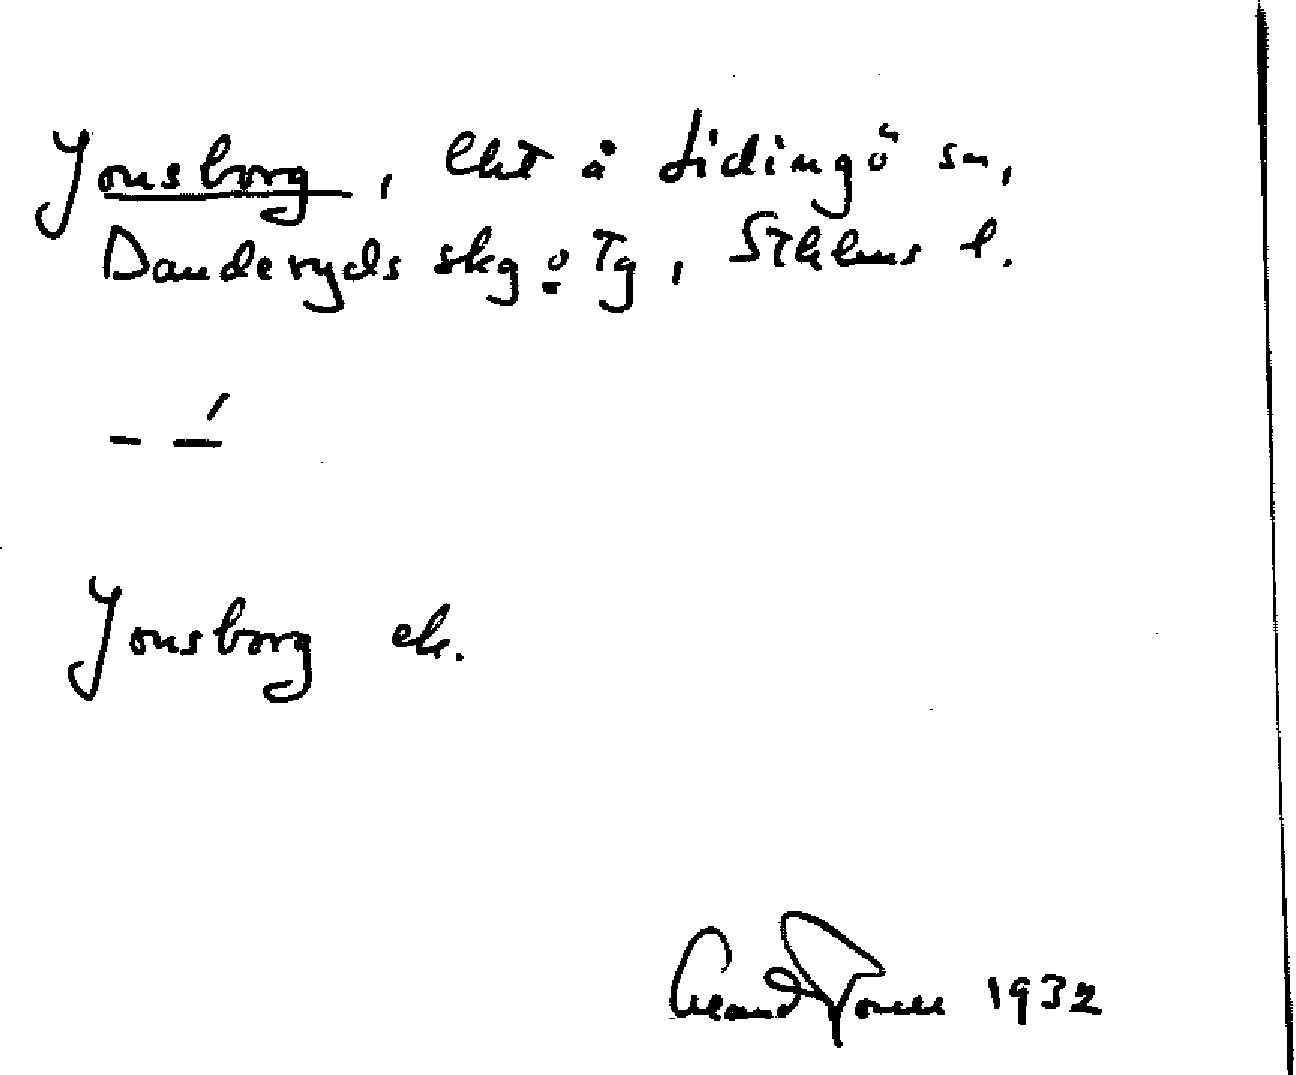 Jonsborg, lht å Lidingö sn,
Danderyds skg o Tg, Sthlms l.
– –́
Jonsborg ek.
1932